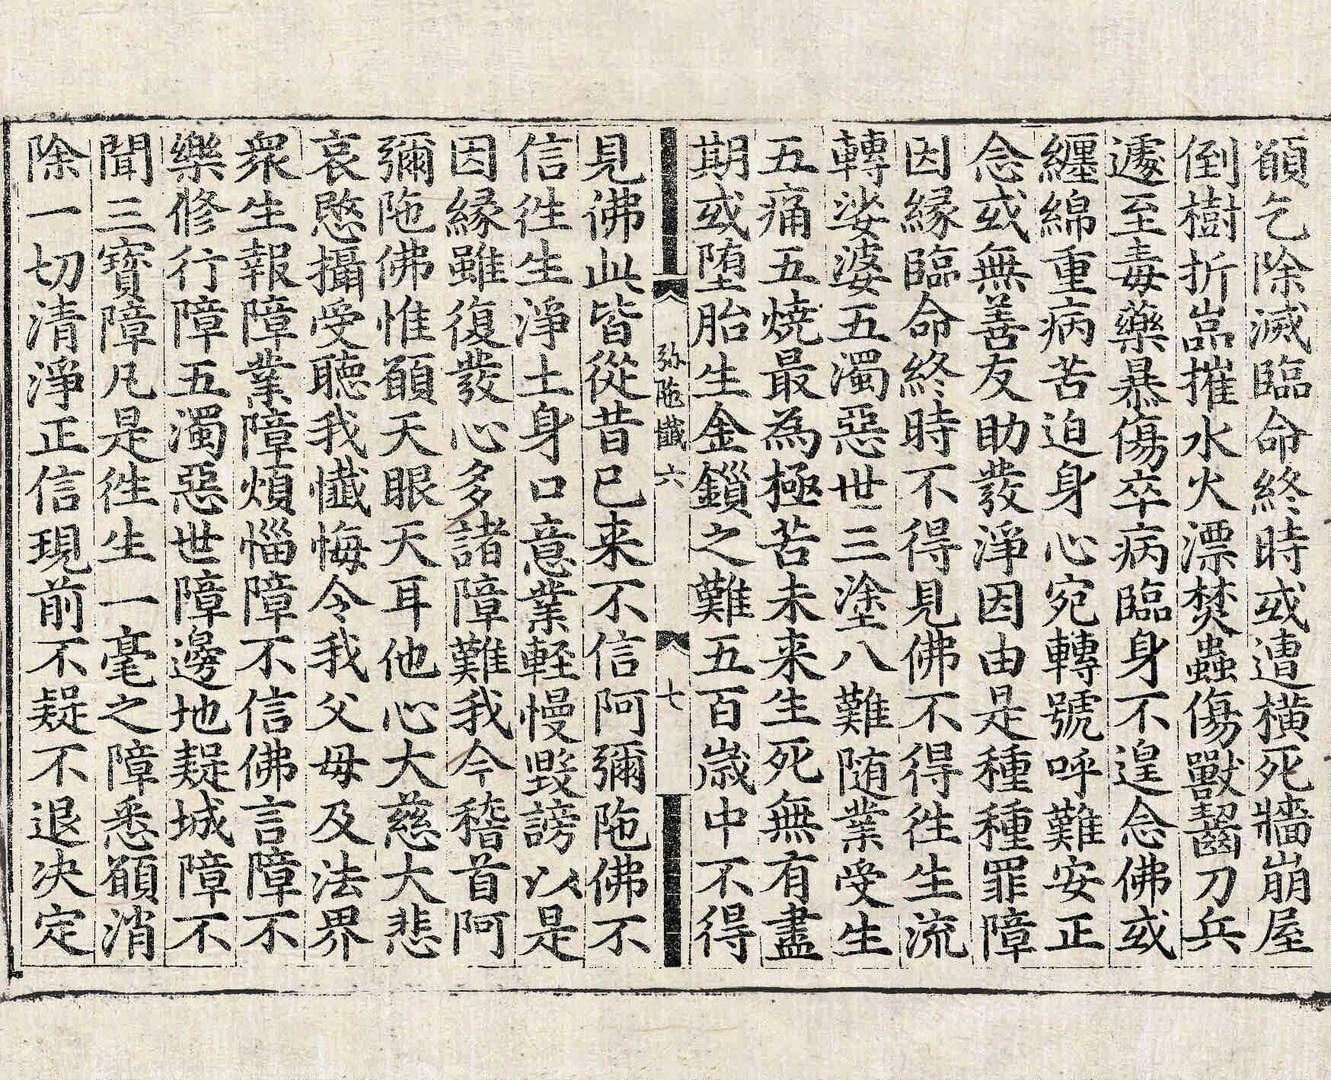 願乞除滅臨命終時或遭橫死牆崩屋
倒樹折嵓摧水火漂焚蟲傷獸齧刀兵
遽至毒藥暴傷卒病臨身不遑念佛或
纏綿重病苦迫身心宛轉號呼難安正
念或無善友助發淨因由是種種罪障
因緣臨命終時不得見佛不得徃生流
轉娑婆五濁惡世三塗八難随業受生
五痛五燒最為極苦未来生死無有盡
期或堕胎生金鎻之難五百歳中不得
弥陁懺六
七
見佛此皆從昔已来不信阿彌陁佛不
信徃生淨土身口意業輕慢毀謗以是
因緣雖復發心多諸障難我今稽首阿
彌陁佛惟願天眼天耳他心大慈大悲
哀愍攝受聽我懺悔令我父母及法界
衆生報障業障煩惱障不信佛言障不
樂修行障五濁惡世障邊地疑城障不
聞三寶障凡是徃生一毫之障悉願消
除一切清淨正信現前不疑不退决定